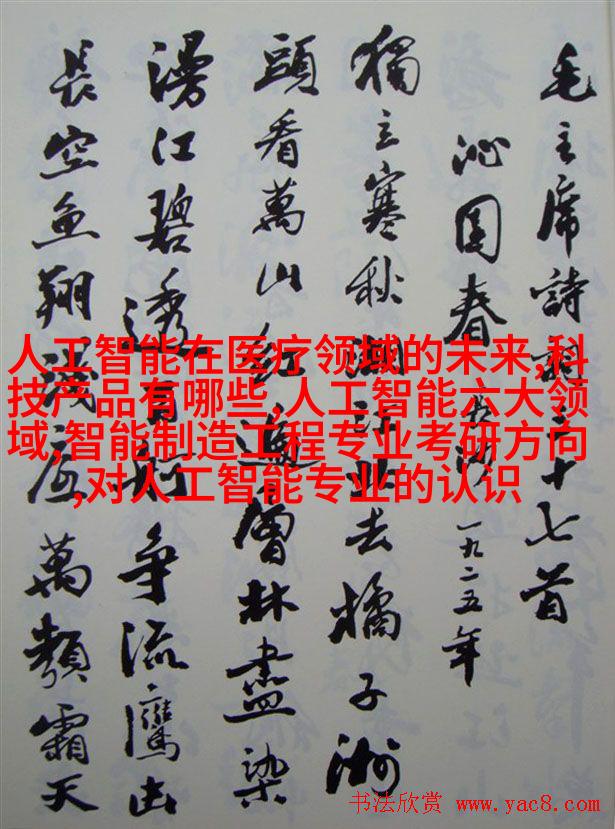 毛主席詩詞三十七首
沁園春 長沙 一九二五年
獨立寒秋湘江北去橘子洲
頭看萬山紅遍層林盡染
漫江碧透百舸争流鷹击
長空魚翔淺底萬類霜天
人工智能在医疗领域的未来,科
技产品有哪些,人工智能六大领
域,智能制造工程专业考研方向
,对人工智能专业的认识
书法欣赏 www.yac8.com